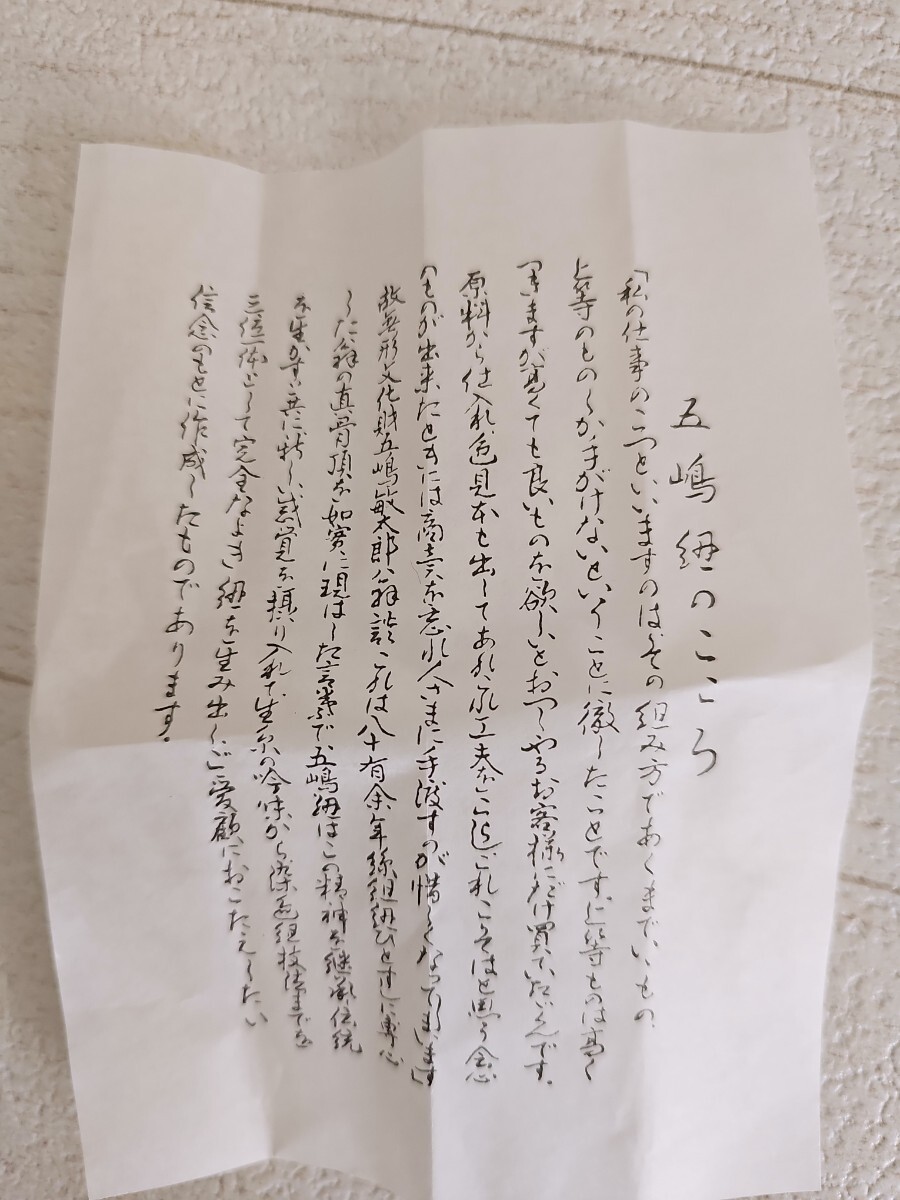 五嶋紐のこころ
「私の仕事のこつといいますのは、その組み方であくまでいいもの、
上等のものしか手がけないということに徹したことです。上等ものは高く
つきますが、高くても良いものを欲しいとおっしやるお客様にだけ買っていたゞくんです。
原料から仕入れ、色見本も出してあれこれ工夫をこらしこれこそはと思う会心
のものが出来たときには商売を忘れ人さまに手渡すのが惜しくなってしまいます」
故無形文化財五嶋敏太郎翁談、これは八十有余年絲組紐ひとすじに専心
した翁の真骨頂を如実に現はした言葉で、五嶋紐はこの精神を継承、伝統
を生かすと共に新しい感覚を摂り入れて生糸の吟味から染色組技法までを
三位一体として完全なよき紐を生み出しご愛顧におこたえしたい
信念のもとに作成したものであります。